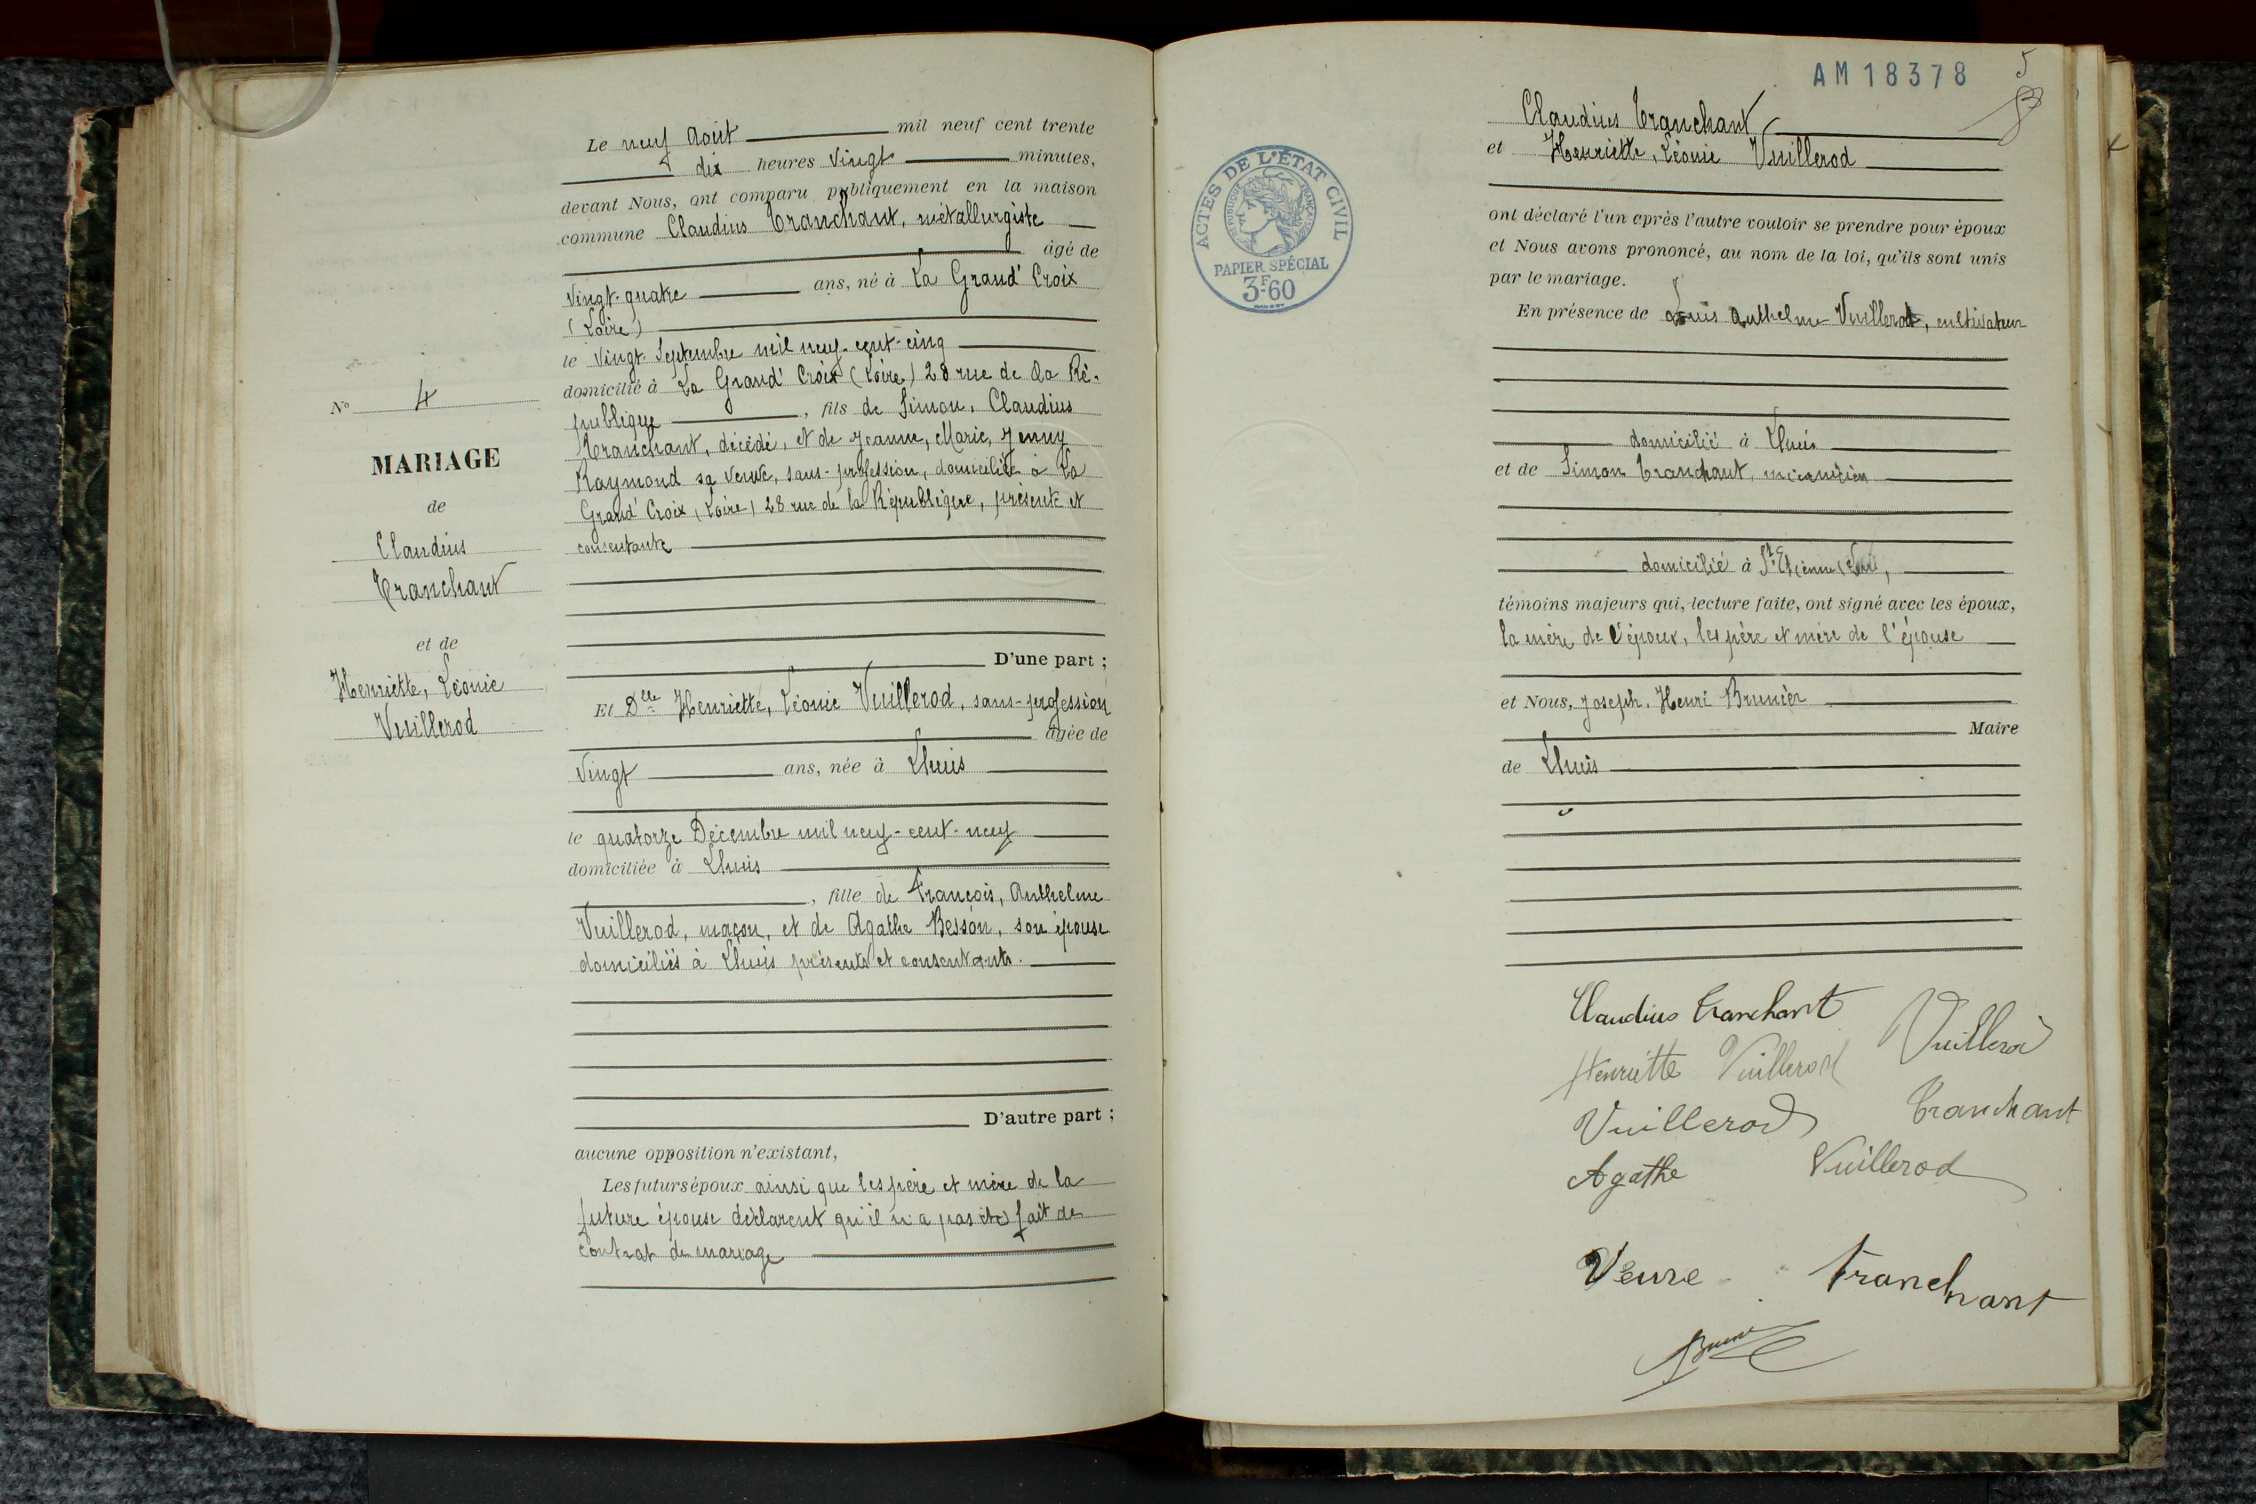 Le neuf Août mil neuf cent trente
dix heures vingt minutes,
devant Nous, ont comparu publiquement en la maison
commune Claudius Tranchant, métallurgiste
âgé de
vingt-quatre ans, né à La Grand' Croix
(Loire)
le vingt Septembre mil neuf-cent-cinq
domicilié à La Grand' Croix (Loire) 28 rue de la Ré-
publique, fils de Simon, Claudius
Tranchant, décédé, et de Jeanne, Marie, Jenny
Raymond sa veuve, sans-profession, domiciliée à La
Grand' Croix (Loire) 28 rue de la République, présente et
consentante
D'une part ;
Et Dlle Henriette, Léonie Vuillerod, sans-profession
âgée de
vingt ans, née à Lhuis
le quatorze Décembre mil neuf-cent-neuf
domiciliée à Lhuis
, fille de François, Anthelme
Vuillerod, maçon, et de Agathe Besson, son épouse
domiciliés à Lhuis présents et consentants.
D'autre part ;
aucune opposition n'existant,
Les futurs époux ainsi que les père et mère de la
future épouse déclarent qu'il n'a pas été fait de
contrat de mariage
No 4
MARIAGE
de
Claudius
Tranchant
et de
Henriette, Léonie
Vuillerod
AM18378
5
Claudius Tranchant
et Henriette, Léonie Vuillerod
ont déclaré l'un après l'autre vouloir se prendre pour époux
et Nous avons prononcé, au nom de la loi, qu'ils sont unis
par le mariage.
En présence de Louis Anthelme Vuillerod, cultivateur
domicilié à Lhuis
et de Simon Tranchant, mécanicien
domicilié à St Etienne (Loire),
témoins majeurs qui, lecture faite, ont signé avec les époux,
la mère de l'époux, les père et mère de l'épouse
et Nous, Joseph, Henri Brunier
Maire
de Lhuis
ACTES DE L'ÉTAT CIVIL
RÉPUBLIQUE FRANÇAISE
PAPIER SPÉCIAL
3F60
Claudius Tranchant
Vuillerod
Henriette Vuillerod
Vuillerod
Tranchant
Agathe Vuillerod
Veuve Tranchant